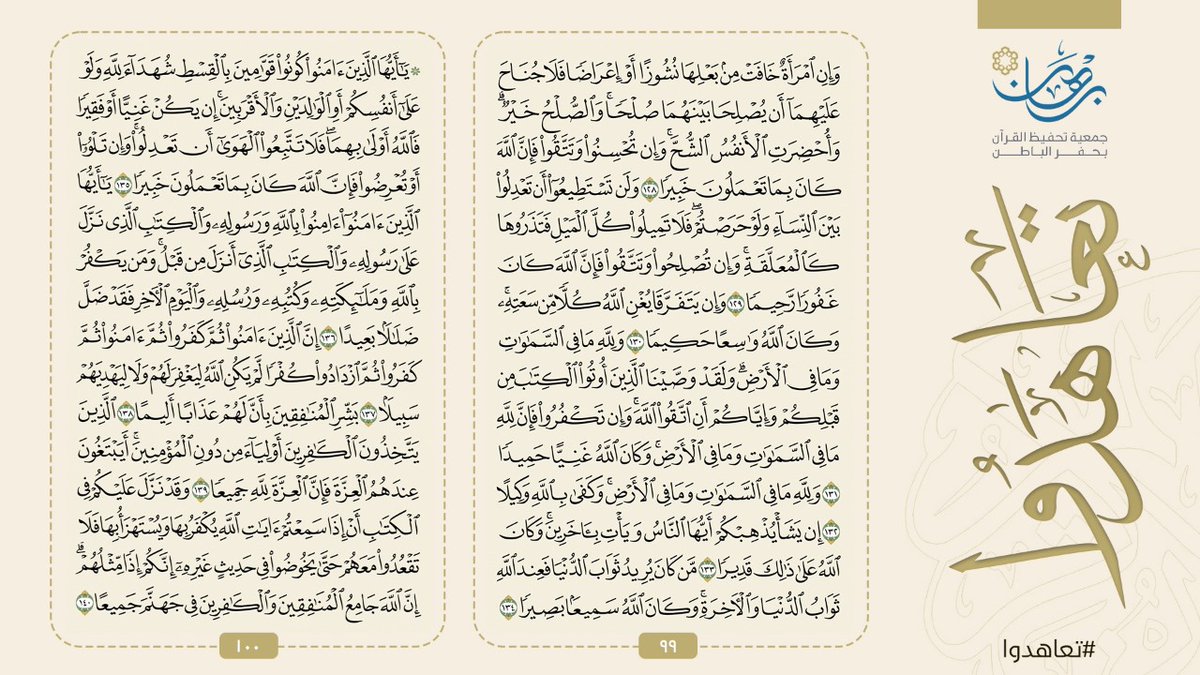 برهان
جمعية تحفيظ القرآن
بحفر الباطن
تعاهدوا
#تعاهدوا
وَإِنِ ٱمْرَأَةٌ خَافَتْ مِنۢ بَعْلِهَا نُشُوزًا أَوْ إِعْرَاضًا فَلَا جُنَاحَ
عَلَيْهِمَآ أَن يُصْلِحَا بَيْنَهُمَا صُلْحًا ۚ وَٱلصُّلْحُ خَيْرٌ ۗ
وَأُحْضِرَتِ ٱلْأَنفُسُ ٱلشُّحَّ ۚ وَإِن تُحْسِنُوا۟ وَتَتَّقُوا۟ فَإِنَّ ٱللَّهَ
كَانَ بِمَا تَعْمَلُونَ خَبِيرًا ١٢٨ وَلَن تَسْتَطِيعُوٓا۟ أَن تَعْدِلُوا۟
بَيْنَ ٱلنِّسَآءِ وَلَوْ حَرَصْتُمْ ۖ فَلَا تَمِيلُوا۟ كُلَّ ٱلْمَيْلِ فَتَذَرُوهَا
كَٱلْمُعَلَّقَةِ ۚ وَإِن تُصْلِحُوا۟ وَتَتَّقُوا۟ فَإِنَّ ٱللَّهَ كَانَ
غَفُورًا رَّحِيمًا ١٢٩ وَإِن يَتَفَرَّقَا يُغْنِ ٱللَّهُ كُلًّا مِّن سَعَتِهِۦ ۚ
وَكَانَ ٱللَّهُ وَٰسِعًا حَكِيمًا ١٣٠ وَلِلَّهِ مَا فِى ٱلسَّمَٰوَٰتِ
وَمَا فِى ٱلْأَرْضِ ۗ وَلَقَدْ وَصَّيْنَا ٱلَّذِينَ أُوتُوا۟ ٱلْكِتَٰبَ مِن
قَبْلِكُمْ وَإِيَّاكُمْ أَنِ ٱتَّقُوا۟ ٱللَّهَ ۚ وَإِن تَكْفُرُوا۟ فَإِنَّ لِلَّهِ
مَا فِى ٱلسَّمَٰوَٰتِ وَمَا فِى ٱلْأَرْضِ ۚ وَكَانَ ٱللَّهُ غَنِيًّا حَمِيدًا
١٣١ وَلِلَّهِ مَا فِى ٱلسَّمَٰوَٰتِ وَمَا فِى ٱلْأَرْضِ ۚ وَكَفَىٰ بِٱللَّهِ وَكِيلًا
١٣٢ إِن يَشَأْ يُذْهِبْكُمْ أَيُّهَا ٱلنَّاسُ وَيَأْتِ بِـَٔاخَرِينَ ۚ وَكَانَ
ٱللَّهُ عَلَىٰ ذَٰلِكَ قَدِيرًا ١٣٣ مَّن كَانَ يُرِيدُ ثَوَابَ ٱلدُّنْيَا فَعِندَ ٱللَّهِ
ثَوَابُ ٱلدُّنْيَا وَٱلْـَٔاخِرَةِ ۚ وَكَانَ ٱللَّهُ سَمِيعًۢا بَصِيرًا ١٣٤
٩٩
۞ يَٰٓأَيُّهَا ٱلَّذِينَ ءَامَنُوا۟ كُونُوا۟ قَوَّٰمِينَ بِٱلْقِسْطِ شُهَدَآءَ لِلَّهِ وَلَوْ
عَلَىٰٓ أَنفُسِكُمْ أَوِ ٱلْوَٰلِدَيْنِ وَٱلْأَقْرَبِينَ ۚ إِن يَكُنْ غَنِيًّا أَوْ فَقِيرًا
فَٱللَّهُ أَوْلَىٰ بِهِمَا ۖ فَلَا تَتَّبِعُوا۟ ٱلْهَوَىٰٓ أَن تَعْدِلُوا۟ ۚ وَإِن تَلْوُۥٓا۟
أَوْ تُعْرِضُوا۟ فَإِنَّ ٱللَّهَ كَانَ بِمَا تَعْمَلُونَ خَبِيرًا ١٣٥ يَٰٓأَيُّهَا
ٱلَّذِينَ ءَامَنُوٓا۟ ءَامِنُوا۟ بِٱللَّهِ وَرَسُولِهِۦ وَٱلْكِتَٰبِ ٱلَّذِى نَزَّلَ
عَلَىٰ رَسُولِهِۦ وَٱلْكِتَٰبِ ٱلَّذِىٓ أَنزَلَ مِن قَبْلُ ۚ وَمَن يَكْفُرْ
بِٱللَّهِ وَمَلَٰٓئِكَتِهِۦ وَكُتُبِهِۦ وَرُسُلِهِۦ وَٱلْيَوْمِ ٱلْـَٔاخِرِ فَقَدْ ضَلَّ
ضَلَٰلًۢا بَعِيدًا ١٣٦ إِنَّ ٱلَّذِينَ ءَامَنُوا۟ ثُمَّ كَفَرُوا۟ ثُمَّ ءَامَنُوا۟ ثُمَّ
كَفَرُوا۟ ثُمَّ ٱزْدَادُوا۟ كُفْرًا لَّمْ يَكُنِ ٱللَّهُ لِيَغْفِرَ لَهُمْ وَلَا لِيَهْدِيَهُمْ
سَبِيلًۢا ١٣٧ بَشِّرِ ٱلْمُنَٰفِقِينَ بِأَنَّ لَهُمْ عَذَابًا أَلِيمًا ١٣٨ ٱلَّذِينَ
يَتَّخِذُونَ ٱلْكَٰفِرِينَ أَوْلِيَآءَ مِن دُونِ ٱلْمُؤْمِنِينَ ۚ أَيَبْتَغُونَ
عِندَهُمُ ٱلْعِزَّةَ فَإِنَّ ٱلْعِزَّةَ لِلَّهِ جَمِيعًا ١٣٩ وَقَدْ نَزَّلَ عَلَيْكُمْ فِى
ٱلْكِتَٰبِ أَنْ إِذَا سَمِعْتُمْ ءَايَٰتِ ٱللَّهِ يُكْفَرُ بِهَا وَيُسْتَهْزَأُ بِهَا فَلَا
تَقْعُدُوا۟ مَعَهُمْ حَتَّىٰ يَخُوضُوا۟ فِى حَدِيثٍ غَيْرِهِۦٓ ۚ إِنَّكُمْ إِذًا مِّثْلُهُمْ ۗ
إِنَّ ٱللَّهَ جَامِعُ ٱلْمُنَٰفِقِينَ وَٱلْكَٰفِرِينَ فِى جَهَنَّمَ جَمِيعًا ١٤٠
١٠٠